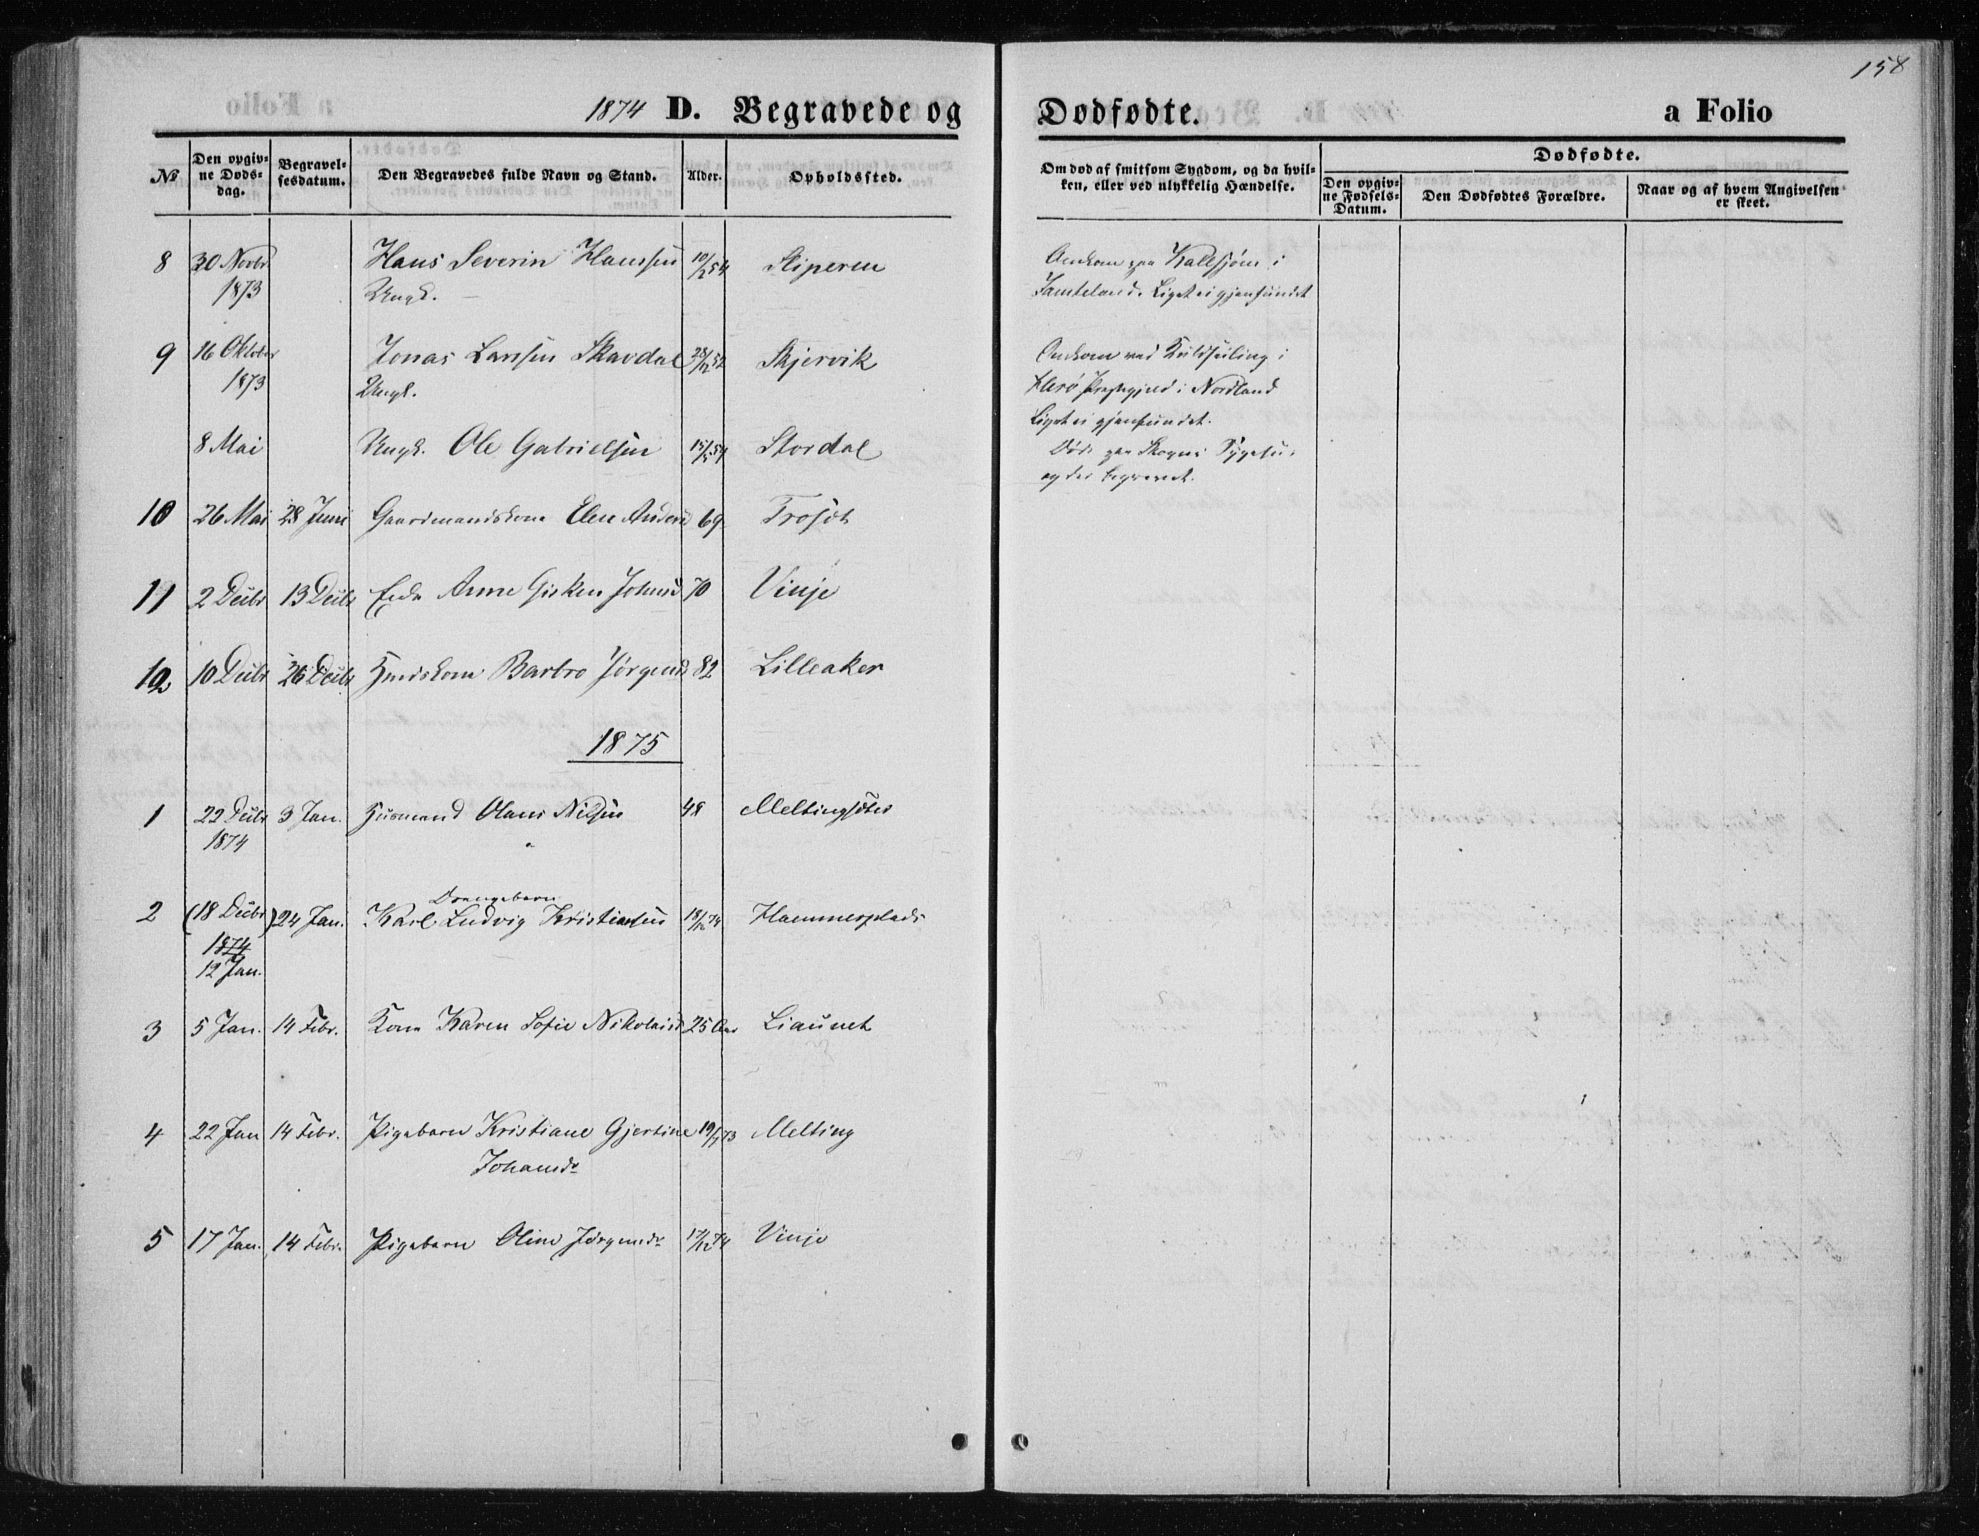 158
1874 D. Begravede og Dødfødte. a Folio
No
Den opgivne Dødsdag.
Begravelsesdatum.
Den Begravedes fulde Navn og Stand.
Alder.
Opholdssted.
Om død af smitsom Sygdom, og da hvilken, eller ved ulykkelig Hændelse.
Dødfødte.
Den opgivne Fødsels-Datum.
Den Dødfødtes Forældre.
Naar og af hvem Angivelsen er skeet.
8 30 Novbr Hans Severin Hanssen 10/12 54 Stiperen Omkom paa Kallsjøen i
1873 Ungk. Jamteland. Liget ei gjenfundet
9 16 Oktober Jonas Larssen Skavdal 28/12 52 Skjervik Omkom ved Kuldseiling i
1873 Ungk. Herø Præstegjeld i Nordland
Liget ei gjenfundet.
8 Mai Ungk. Ole Gabrielsen 15/5 54 Stordal Død paa Skogns Sygehus
og der begravet.
10 26 Mai 28 Juni Gaardmandskone Elen Andersd 69 Trøset
11 2 Decbr 13 Decbr Anne Gisken Johnsd 70 Vinje
12 10 Decbr 26 Decbr Hmdskone Barbro Jørgensd 82 Lilleaker
1875
1 22 Decbr 3 Jan. Husmand Olaus Nilsen 48
1874
Drengebarn
2 (18 Decbr) 24 Jan. Karl Ludvig Kristiansen 18/12 74 Hammerplads
1874
12 Jan.
3 5 Jan. 14 Febr. Kone Karen Sofie Nikolaisd 25 Aar Liaunet
4 22 Jan 14 Febr. Pigebarn Kristiane Gjertine 19/1 73 Melting
Johansdr
5 17 Jan. 14 Febr. Pigebarn Oline Jørgensdr 17/12 74 Vinje